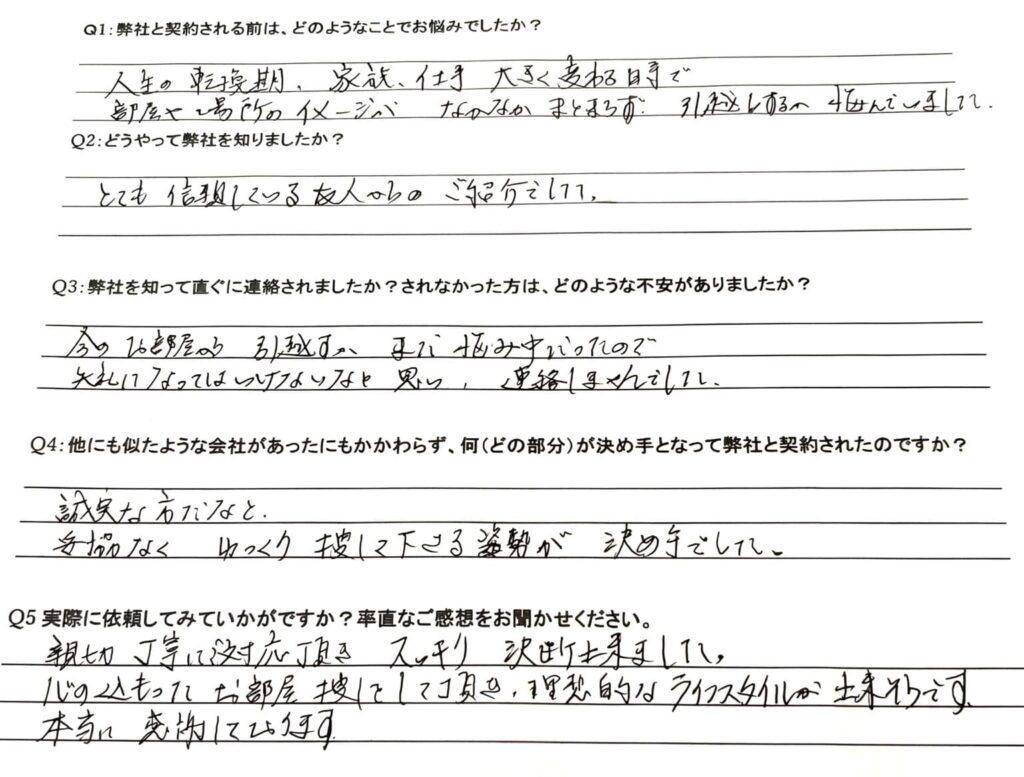 Q1：弊社と契約される前は、どのようなことでお悩みでしたか？
人生の転換期、家族、仕事 大きく変わる時で
部屋や場所のイメージが なかなかまとまらず 引越しするか 悩んでいました。
Q2：どうやって弊社を知りましたか？
とても信頼している友人からの ご紹介でした。
Q3：弊社を知って直ぐに連絡されましたか？されなかった方は、どのような不安がありましたか？
今のお部屋から 引越すか まだ 悩み中だったので
失礼になってはいけないなと 思い、連絡しませんでした。
Q4：他にも似たような会社があったにもかかわらず、何（どの部分）が決め手となって弊社と契約されたのですか？
誠実な方だなと.
妥協なく ゆっくり 捜して下さる姿勢が 決め手でした。
Q5 実際に依頼してみていかがですか？率直なご感想をお聞かせください。
親切 丁寧に対応頂き スッキリ 決断出来ました。
心の込もった お部屋 捜しをして頂き、理想的な ライフスタイルが 出来そうです
本当に 感謝しております